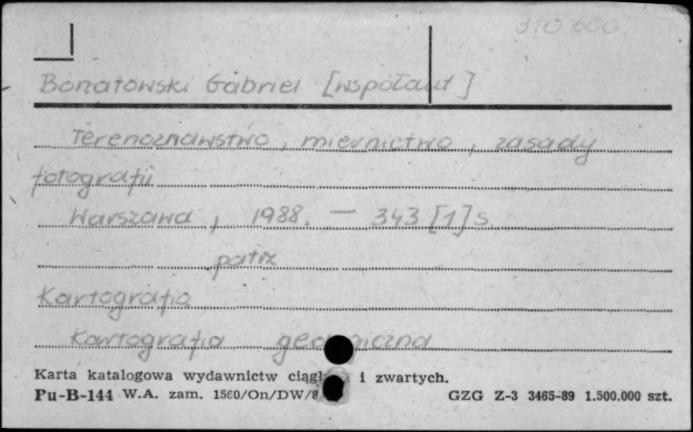 310 600
Bonatowski Gabriel [współaut]
Terenoznawstwo, miernictwo, zasady
fotografii
Warszawa, 1988. — 343 [1] s.
patrz
Kartografia
Kartografia geologiczna
Karta katalogowa wydawnictw i zwartych.
Pu-B-144 W.A. zam. 1580/On/DW/8 GZG Z-3 3465-89 1.500.000 szt.